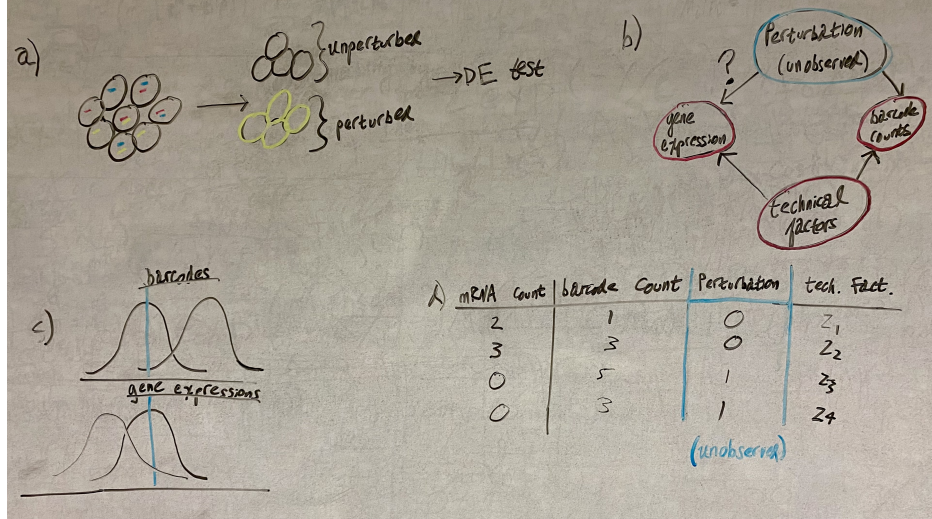 a)
unperturbed
perturbed
→ DE test
b)
Perturbation
(unobserved)
?
gene
expression
barcode
counts
technical
factors
c)
barcodes
gene expressions
d)
mRNA count | barcode count | Perturbation | tech. Fact.
2 | 1 | 0 | Z1
3 | 3 | 0 | Z2
0 | 5 | 1 | Z3
0 | 3 | 1 | Z4
(unobserved)